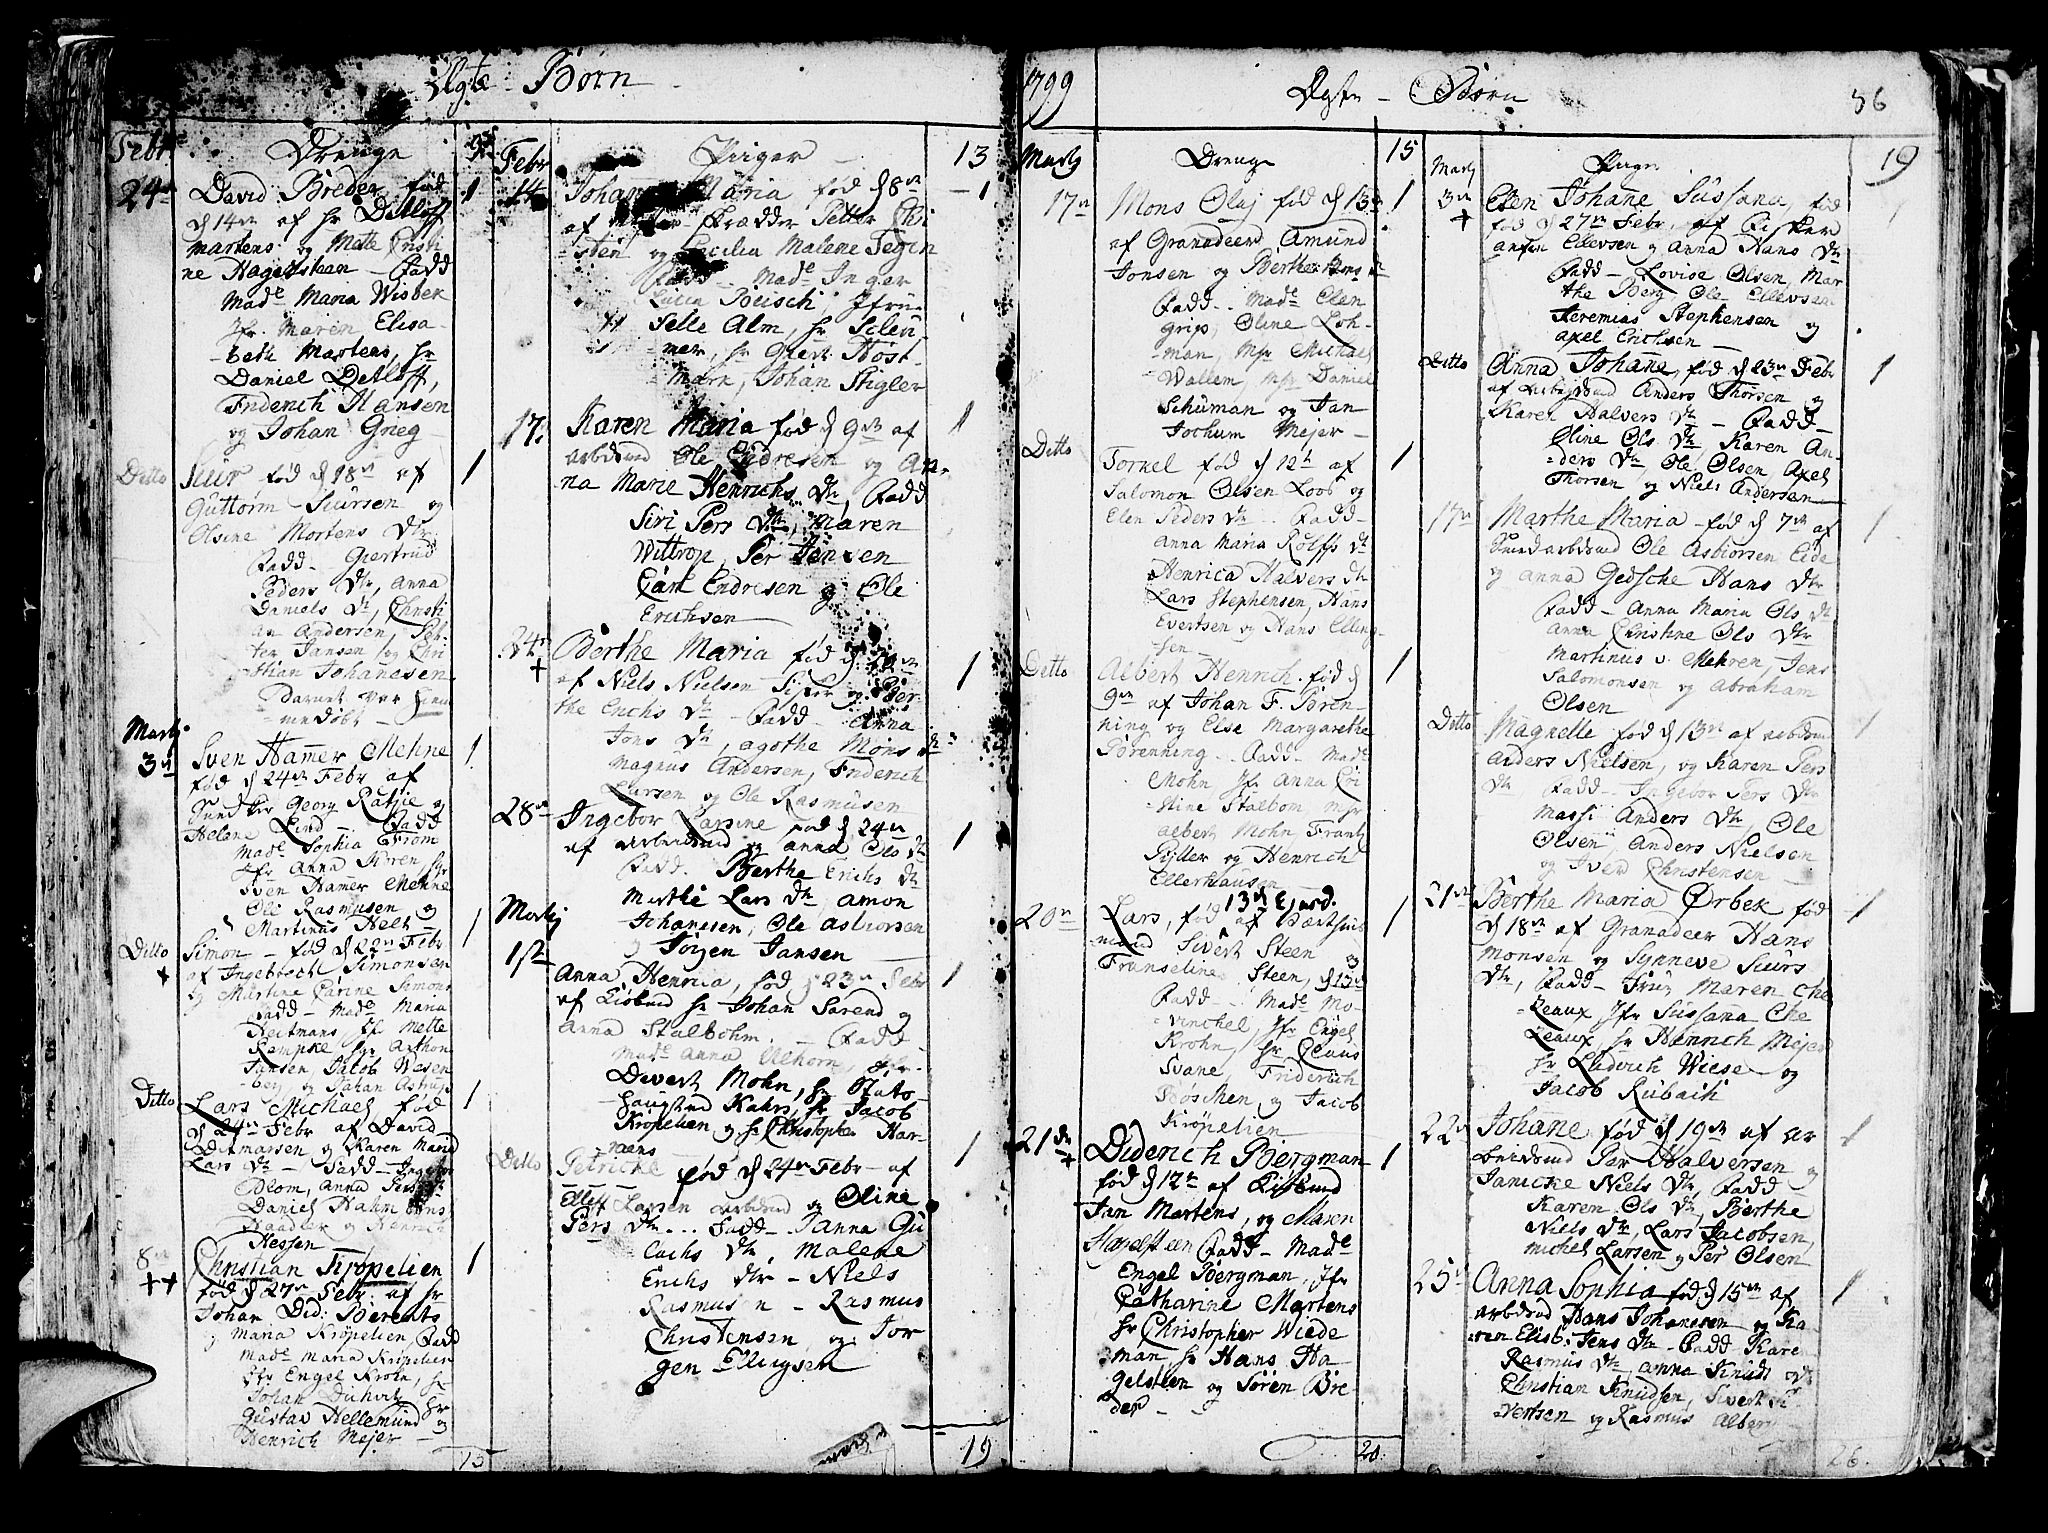 Ægte Børn
Febr.
Drenge
24de
David Breder fød
d 14de af hr Ditloff
Martens og Mette Cristi
ne Hagelsteen - Fadd
Made Maria Wisbek
Jfr. Maren Elisa-
beth Martens, hr
Daniel Detloff,
Friderich Hansen
og Johan Grieg
1
Ditto
Siur fød d 18de af
Guttorm Siursen og
Olsine Mortens Dtr
Fadd - Giertrud
Peders Dtr, Anna
Daniels Dr, Christi
an Andersen, Pet-
ter Jansen og Chri
stian Johanesen
Barnet var hiem
medøbt -
1
Martj
3de
Sven Hamer Mehne
fød d 24de Febr af
Georg Ratje og
Helene Lind Fadd
Made Sophia From
Jfr Anna Koren, hr
Sven Hamer Mehne
Ole Rasmusen og
Martinus Heet
1
Ditto
+
Simon - fød d 22de Febr
af Ingebrecht Simonsen
og Martine Carine Simons
Fadd - Made Maria
Heitmans Jfr Mette
Rempke hr Anthon
Jansen, Jacob Wesen
berg og Johan Astrup
1
Ditto
Lars Michael fød
d 24de Febr af David
Ditmarsen og Karen Maria
Lars Dr - Fadd - Ingebor
Blom, Anna
Daniel Hahn
og Henrich
Hessen
1
8de
++
Christian Krøpelien
fød d 27de Febr. af hr
Johan Did: Berents
og Maria Krøpelien, Fadd
Made Maria Krøpelien
Jfr Engel Krohn, hr
Johan
Gustav Hellemund og
Henrich Mejer
1
15
Febr
Piiger
13
14
Johan Maria fød d 8de
af Skrædder Petter
og Cecilia Malene
Fadd - Made Inger
Lucia Beisch, Jfru
Selle Alm, hr
mer, hr Giert Høst-
mark, Johan Stigler
1
17.
Karen Maria fød d 9de af
arbdsmd Ole Endresen og An-
na Marie Henrichs Dtr, Fadd
Siri Pers Dtr, Maren
Wittrop, Per Jensen
Carl Endresen og Ole
Erichsen
1
24
+
Berthe Maria fød d
af Niels Nielsen Fisker og Ber-
the Erichs Dr - Fadd - Anna
Jons Dr, Agothe Mons Dr
Magnus Andersen, Friderich
Larsen og Ole Rasmusen
1
28de
Ingebor Larsine fød d 24de
af Arbeidsmd og Anna Ols Dr
Fadd. Berthe Erichs Dr
Marthe Lars Dr, Amon
Johanesen, Ole Asbiørsen
og Jørgen Jansen
1
Martij
1ste
Anna Henrica, fød d 23de Febr
af Kiøbmd hr Johan Sarend og
Anna Stalbohm. - Fadd
Made Anna Ulhorn, Jfr.
Divert Mohn, hr Stats-
hauptmd Kahrs, hr Jacob
Krøpelien og hr Christopher Har-
mens
1
Ditto
Petricke fød d 24de Febr - af
Ellef Larsen arbdsmd og Oline
Pers Dr... Fadd - Janna Gu
lachs Dr, Malene
Erichs Dtr - Niels
Rasmusen - Rasmus
Christensen og Jør
gen Ellingsen
1
19
1799
Ægte - Børn
56
Martj
Drenge
15
17de
Mons Olaj fød d 13de
af Granadeer Amund
Jonsen og Berthe Mons Dr
Fadd. Made Elen
Grip, Oline Loh-
man, Mr Michael
Wallem, Mr Daniel
Schuman og Jan
Jochum Mejer -
1
Ditto
Tornel fød d 12te af
Salomon Olsen Loos og
Elen Peders Dr - Fadd -
Anna Maria Rolfs Dr
Henrica Halvers Dr
Lars Stephensen, Hans
Evertsen og Hans Elling-
sen
1
Ditto
Albert Henrich fød d
9de af Johan F. Børen-
ning og Else Margarethe
Børenning - Fadd - Made
Mohn Jfr Anna Cri
stine Stalbom, Mr
Albert Mohn, Frantz
Pÿtter og Henrich
Ellerhausen
1
20de
Lars, fød 13de Ejusd. af
mand Sivert Steen og
Franseline Steen, d 13de
Fadd - Made Mo-
vinchel, Jfr Engel
Krohn, hr Claus
Svane, Friderich
Bøschen, og Jacob
Krøpelien
1
21de
+
Diderich Bergman
fød d 12te af Kiøbmd
Jan Martens, og Maren
Hagelsteen Fadd - Made
Engel Bergman, Jfr
Catharine Martens
hr Christopher Wiede
man, hr Hans Ha
gelsteen og Søren Bre
der - -
1
20.
Martj
Piger
19
3de
+
Elen Johane Sussana, fød
fød d 27de Febr, af Fisker
Anfin Ellevsen og Anna Hans Dr
Fadd - Lovise Olsen, Mar
the Berg, Ole Ellevsen
Jeremias Stephensen og
Axel Erichsen
1
Ditto
Anna Johane, fød d 23de Febr
af Arbejdsmd Anders Thorsen og
Karen Halvers Dr - Fadd -
Oline Ols Dr, Karen An-
ders Dr, Ole Olsen, Axel
Thorsen og Niels Andersen
1
17de
Marthe Maria - fød d 7de af
Sundarbdsmd Ole Asbiørsen Eide
og Anna Gedsche Hans Dtr
Fadd - Anna Maria Ols Dr
Anna Christine Ols Dtr
Martinus v. Mehren, Jens
Salomonsen og Abraham
Olsen
1
Ditto
Magnelle fød d 13de af arbdsmd
Anders Nielsen, og Karen Pers
Dr, Fadd - Ingebor Pers Dtr
Massi Anders Dtr, Ole
Olsen, Anders Nielsen
og Iver Christensen
1
21de
Berthe Maria Ørbek fød
d 18de af Granadeer Hans
Monsen og Synneve Siurs
Dr, Fadd - Fru Maren Che
leaux Jfr Sussana Che
leaux, hr Henrich Mejer
hr Ludvich Wiese og
Jacob Rubach
1
22de
Johane fød d 19de af ar
beidsmd Per Halversen og
Janicke Niels Dr, Fadd -
Karen Ols Dr, Berthe
Niels Dr, Lars Jacobsen,
Michel Larsen og Per Olsen
1
25de
Anna Sophia fød d 15de af
arbdsmd Hans Johanesen og Ka
ren Elisb: Jens Dr - Fadd Karen
Rasmus Dr, Anna Knuds Dr
Christian Knudsen, Sivert Si
vertsen og Rasmus Alber
1
26.